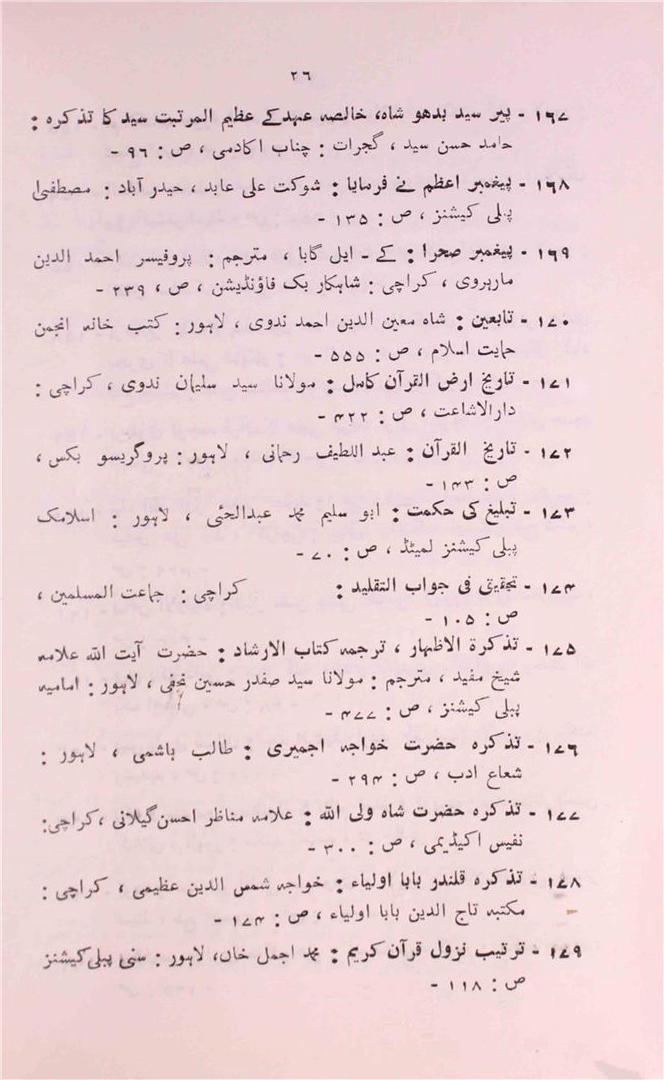 ۲۶
۱۶۷ - پیر سید بدھو شاہ، خالصہ عہد کے عظیم المرتبت سید کا تذکرہ :
حامد حسن سید ، گجرات : چناب اکادمی ، ص : ۹۶ -
۱۶۸ - پیغمبر اعظم نے فرمایا : شوکت علی عابد ، حیدر آباد : مصطفیٰ
پبلی کیشنز ، ص : ۱۳۵ -
۱۶۹ - پیغمبر صحرا : کے - ایل گابا ، مترجم : پروفیسر احمد الدین
مارہروی ، کراچی : شاہکار بک فاؤنڈیشن ، ص ، ۲۳۹ -
۱۷۰ - تابعین : شاہ معین الدین احمد ندوی ، لاہور : کتب خانہ انجمن
حمایت اسلام ، ص : ۵۵۵ -
۱۷۱ - تاریخ ارض القرآن کامل : مولانا سید سلیمان ندوی ، کراچی :
دارالاشاعت ، ص : ۴۲۲ -
۱۷۲ - تاریخ القرآن : عبد اللطیف رحمانی ، لاہور : پروگریسو بکس ،
ص : ۱۴۳ -
۱۷۳ - تبلیغ کی حکمت : ابو سلیم محمد عبدالحئی ، لاہور : اسلامک
پبلی کیشنز لمیٹڈ ، ص : ۷۰ -
۱۷۴ - تحقیق فی جواب التقلید : کراچی : جماعت المسلمین ،
ص : ۱۰۵ -
۱۷۵ - تذکرۃ الاظہار ، ترجمہ کتاب الارشاد : حضرت آیت اللہ علامہ
شیخ مفید ، مترجم : مولانا سید صفدر حسین نجفی ، لاہور : امامیہ
پبلی کیشنز ، ص : ۴۷۷ -
۱۷۶ - تذکرہ حضرت خواجہ اجمیری : طالب ہاشمی ، لاہور :
شعاع ادب ، ص : ۲۹۴ -
۱۷۷ - تذکرہ حضرت شاہ ولی اللہ : علامہ مناظر احسن گیلانی ، کراچی :
نفیس اکیڈیمی ، ص : ۳۰۰ -
۱۷۸ - تذکرہ قلندر بابا اولیاء : خواجہ شمس الدین عظیمی ، کراچی :
مکتبہ تاج الدین بابا اولیاء ، ص : ۱۷۴ -
۱۷۹ - ترتیب نزول قرآن کریم : محمد اجمل خاں، لاہور : سنی پبلی کیشنز
ص : ۱۱۸ -